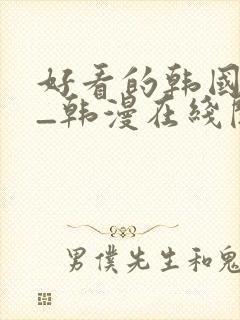 好看的韩国
_韩漫在线
男僕先生和鬼